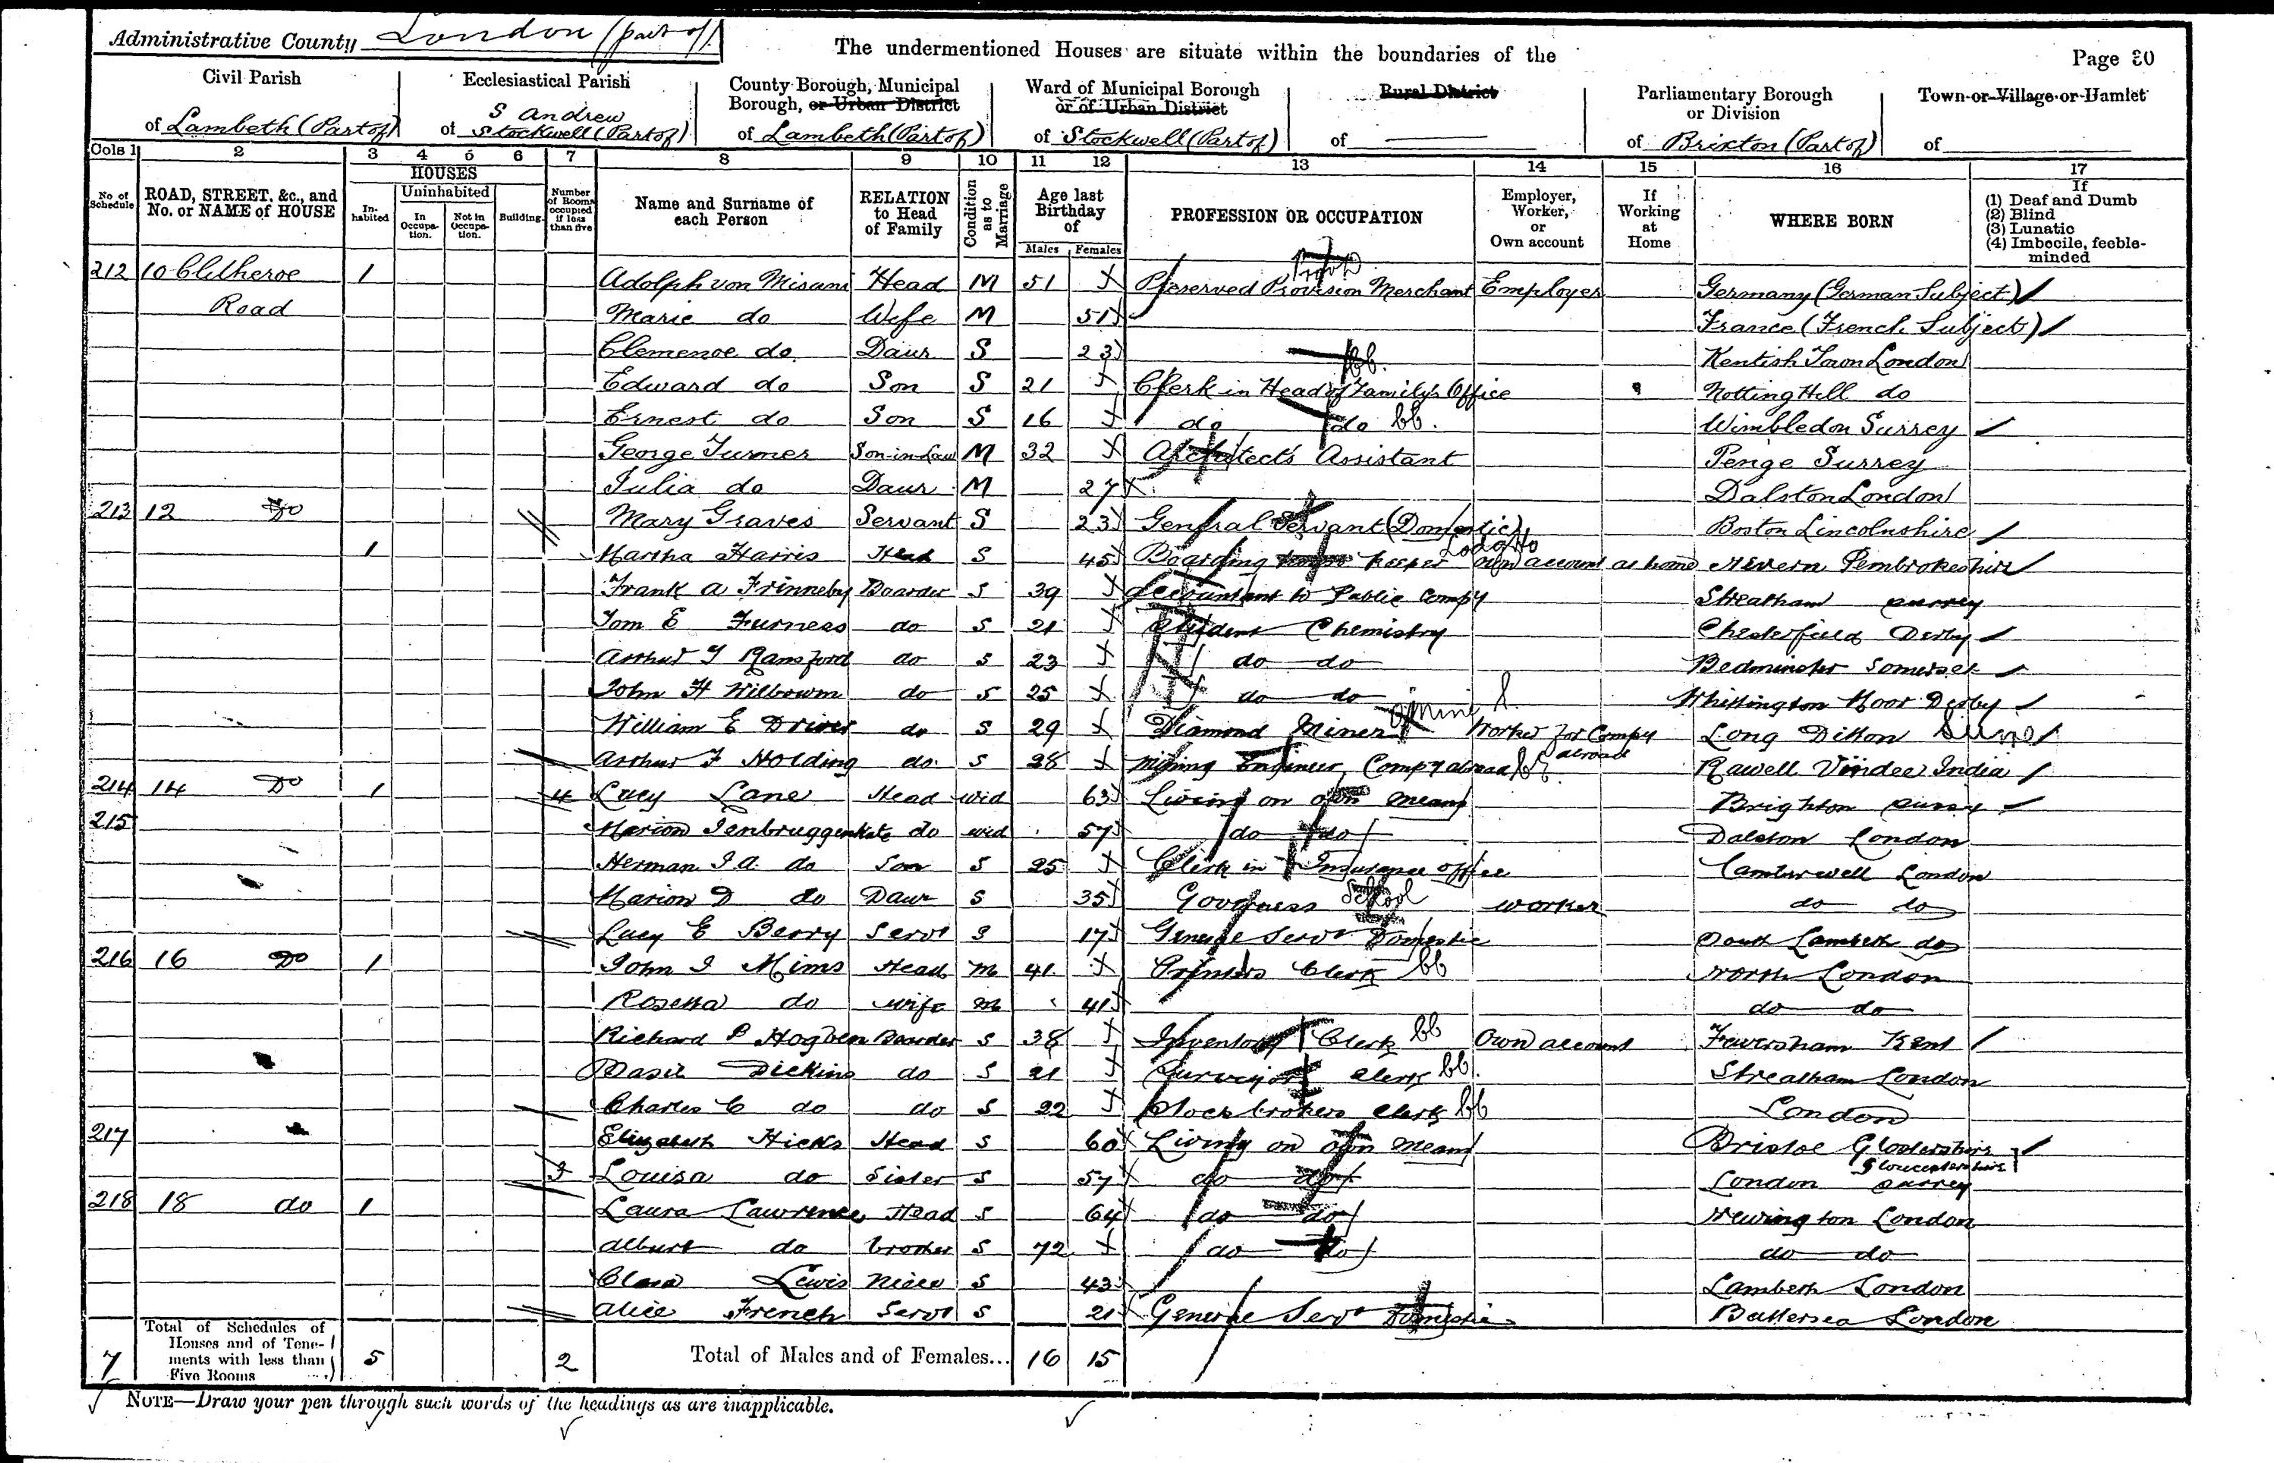 Administrative County London (part of)
The undermentioned Houses are situate within the boundaries of the
Page 30
Civil Parish
of Lambeth (Part of)
Ecclesiastical Parish
S Andrew
of Stockwell (Part of)
County Borough, Municipal
Borough, or Urban District
of Lambeth (Part of)
Ward of Municipal Borough
or of Urban District
of Stockwell (Part of)
Rural District
of
Parliamentary Borough
or Division
of Brixton (Part of)
Town or Village or Hamlet
of
Cols 1 2 3 4 5 6 7 8 9 10 11 12 13 14 15 16 17
No of Schedule
ROAD, STREET, &c., and No. or NAME of HOUSE
HOUSES
Inhabited
Uninhabited
In Occupation.
Not in Occupation.
Building.
Number of Rooms occupied if less than five
Name and Surname of each Person
RELATION to Head of Family
Condition as to Marriage
Age last Birthday of
Males Females
PROFESSION OR OCCUPATION
Employer, Worker, or Own account
If Working at Home
WHERE BORN
If
(1) Deaf and Dumb
(2) Blind
(3) Lunatic
(4) Imbecile, feeble-minded
212 10 Clitheroe 1 Adolph von Misani Head M 51 X Preserved Provision Merchant Employer Germany (German Subject)
Road Marie do Wife M 51 France (French Subject)
Clemence do Daur S 23 Kentish Town London
Edward do Son S 21 X Clerk in Head of Family's Office Notting Hill do
Ernest do Son S 16 X do do bb. Wimbledon Surrey
George Turner Son-in-Law M 32 X Architect's Assistant Penge Surrey
Julia do Daur M 27 Dalston London
213 12 Do Mary Graves Servant S 23 General Servant (Domestic) Boston Lincolnshire
1 Martha Harris Head S 45 Boarding house keeper Lodg Ho own account at home Nevern Pembrokeshire
Frank A Frinneby Boarder S 39 X Accountant to Public Compy Streatham Surrey
Tom E Furness do S 21 X Student Chemistry Chesterfield Derby
Arthur T Ransford do S 23 X do do Bedminster Somerset
John H do S 25 X do do Whittington Moor Derby
William E Driver do S 29 X Diamond Miner Worker for Compy abroad Long Ditton Surrey
Arthur F Holding do S 28 X Mining Engineer Compy abroad India
214 14 Do 1 4 Lucy Lane Head Wid 63 Living on own means Brighton
215 Marion Tenbruggenkate do wid 57 do do Dalston London
Herman I A do Son S 25 X Clerk in Insurance office Camberwell London
Marion D do Daur S 35 Governess School worker do do
Lucy E Berry Servt S 17 General Servt Domestic South Lambeth do
216 16 Do 1 John J Mims Head M 41 X Printers Clerk bb North London
Rosetta do wife M 41 do do
Richard P Hogben Boarder S 38 X Inventory Clerk bb Own account Feversham Kent
Basil Dickins do S 21 X Surveyors Clerk bb. Streatham London
Charles C do do S 22 X Stock brokers Clerk bb London
217 Elizabeth Hicks Head S 60 Living on own means Bristol Glostershire
Gloucestershire
Louisa do Sister S 57 do do London Surrey
218 18 do 1 Laura Lawrence Head S 64 do do Newington London
Albert do brother S 72 X do do do do
Clara Lewis Niece S 43 Lambeth London
Alice French Servt S 21 General Servt Domestic Battersea London
7 Total of Schedules of Houses and of Tenements with less than Five Rooms 5 2 Total of Males and of Females... 16 15
NOTE—Draw your pen through such words of the headings as are inapplicable.